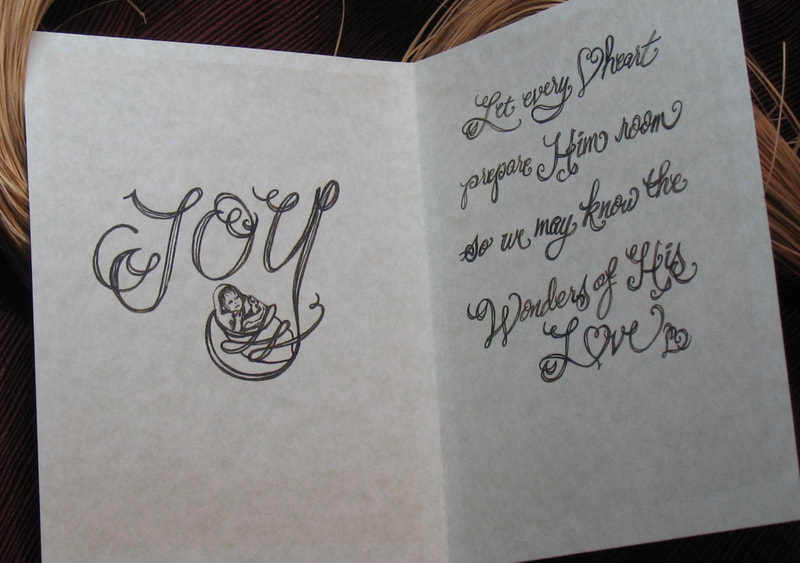 JOY
Let every heart
prepare Him room
so we may know the
Wonders of His
Love